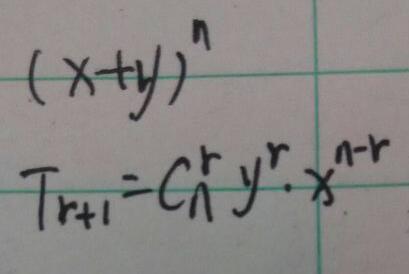 (x+y)^n
T_{r+1}=C_n^r y^r·x^{n-r}